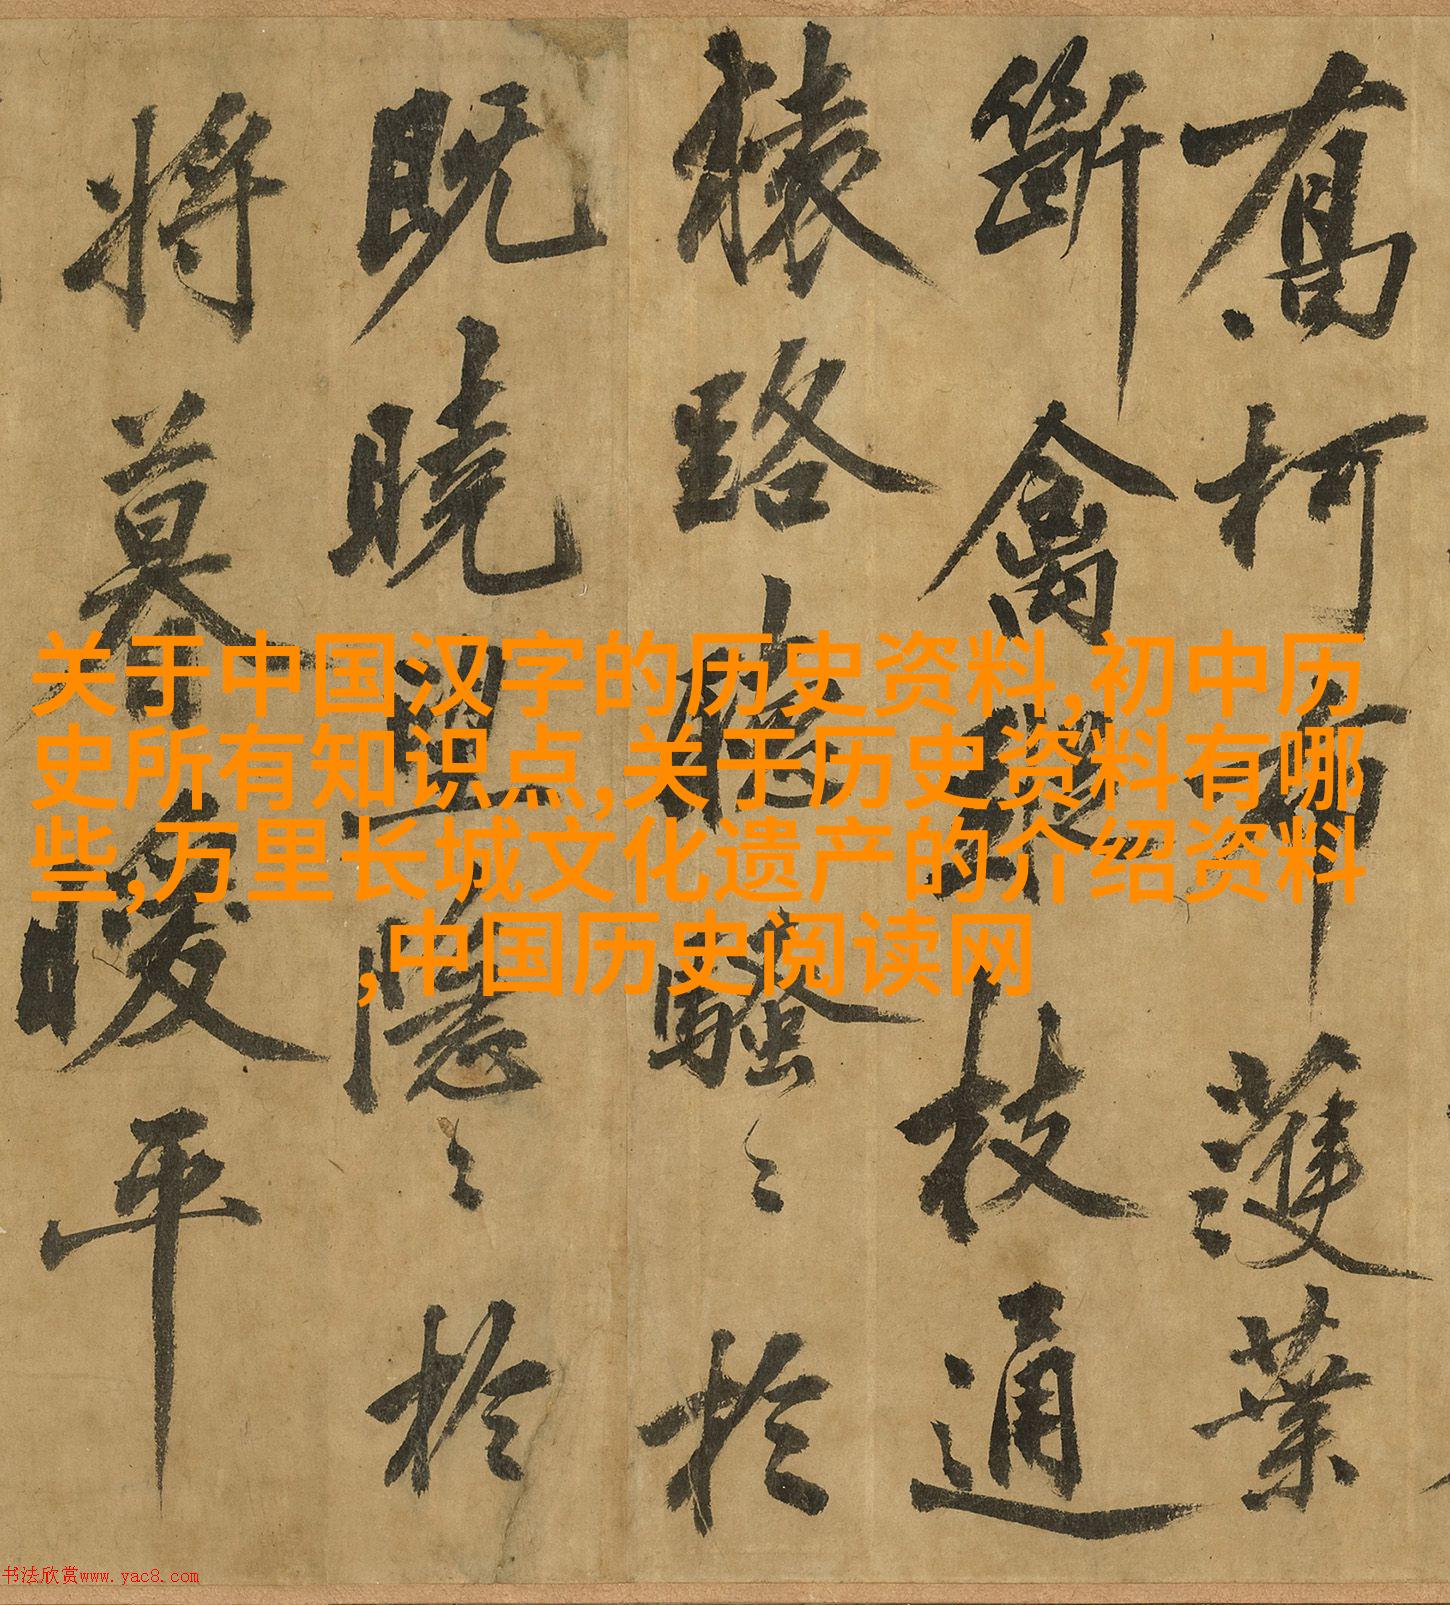 喬柯布濩葉
斷禽枝通
猿路騷〻於
既曉隱〻於
將暮暖平
关于中国汉字的历史资料,初中历
史所有知识点,关于历史资料有哪
些,万里长城文化遗产的介绍资料
,中国历史阅读网
书法欣赏www.yac8.com